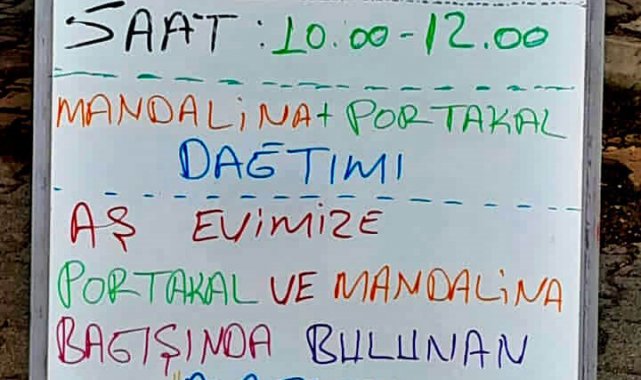 SAAT : 10.00-12.00
MANDALİNA+ PORTAKAL
DAĞITIMI
AŞ EVİMİZE
PORTAKAL VE MANDALİNA
BAĞIŞINDA BULUNAN